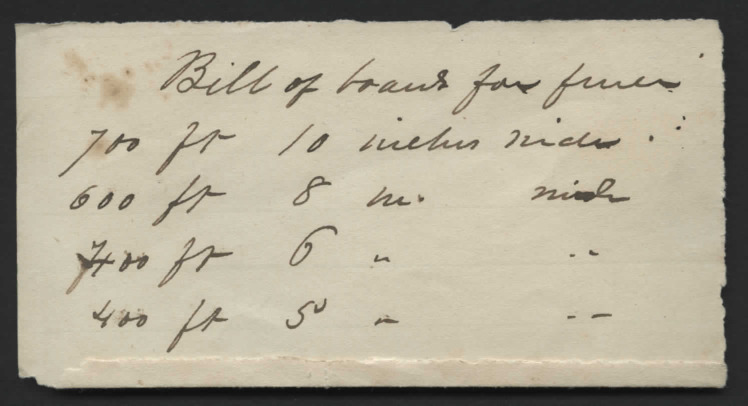 Bill of boards for fence
700 ft 10 inches wide
600 ft 8 in. wide
400 ft 6 " "
400 ft 5 " "